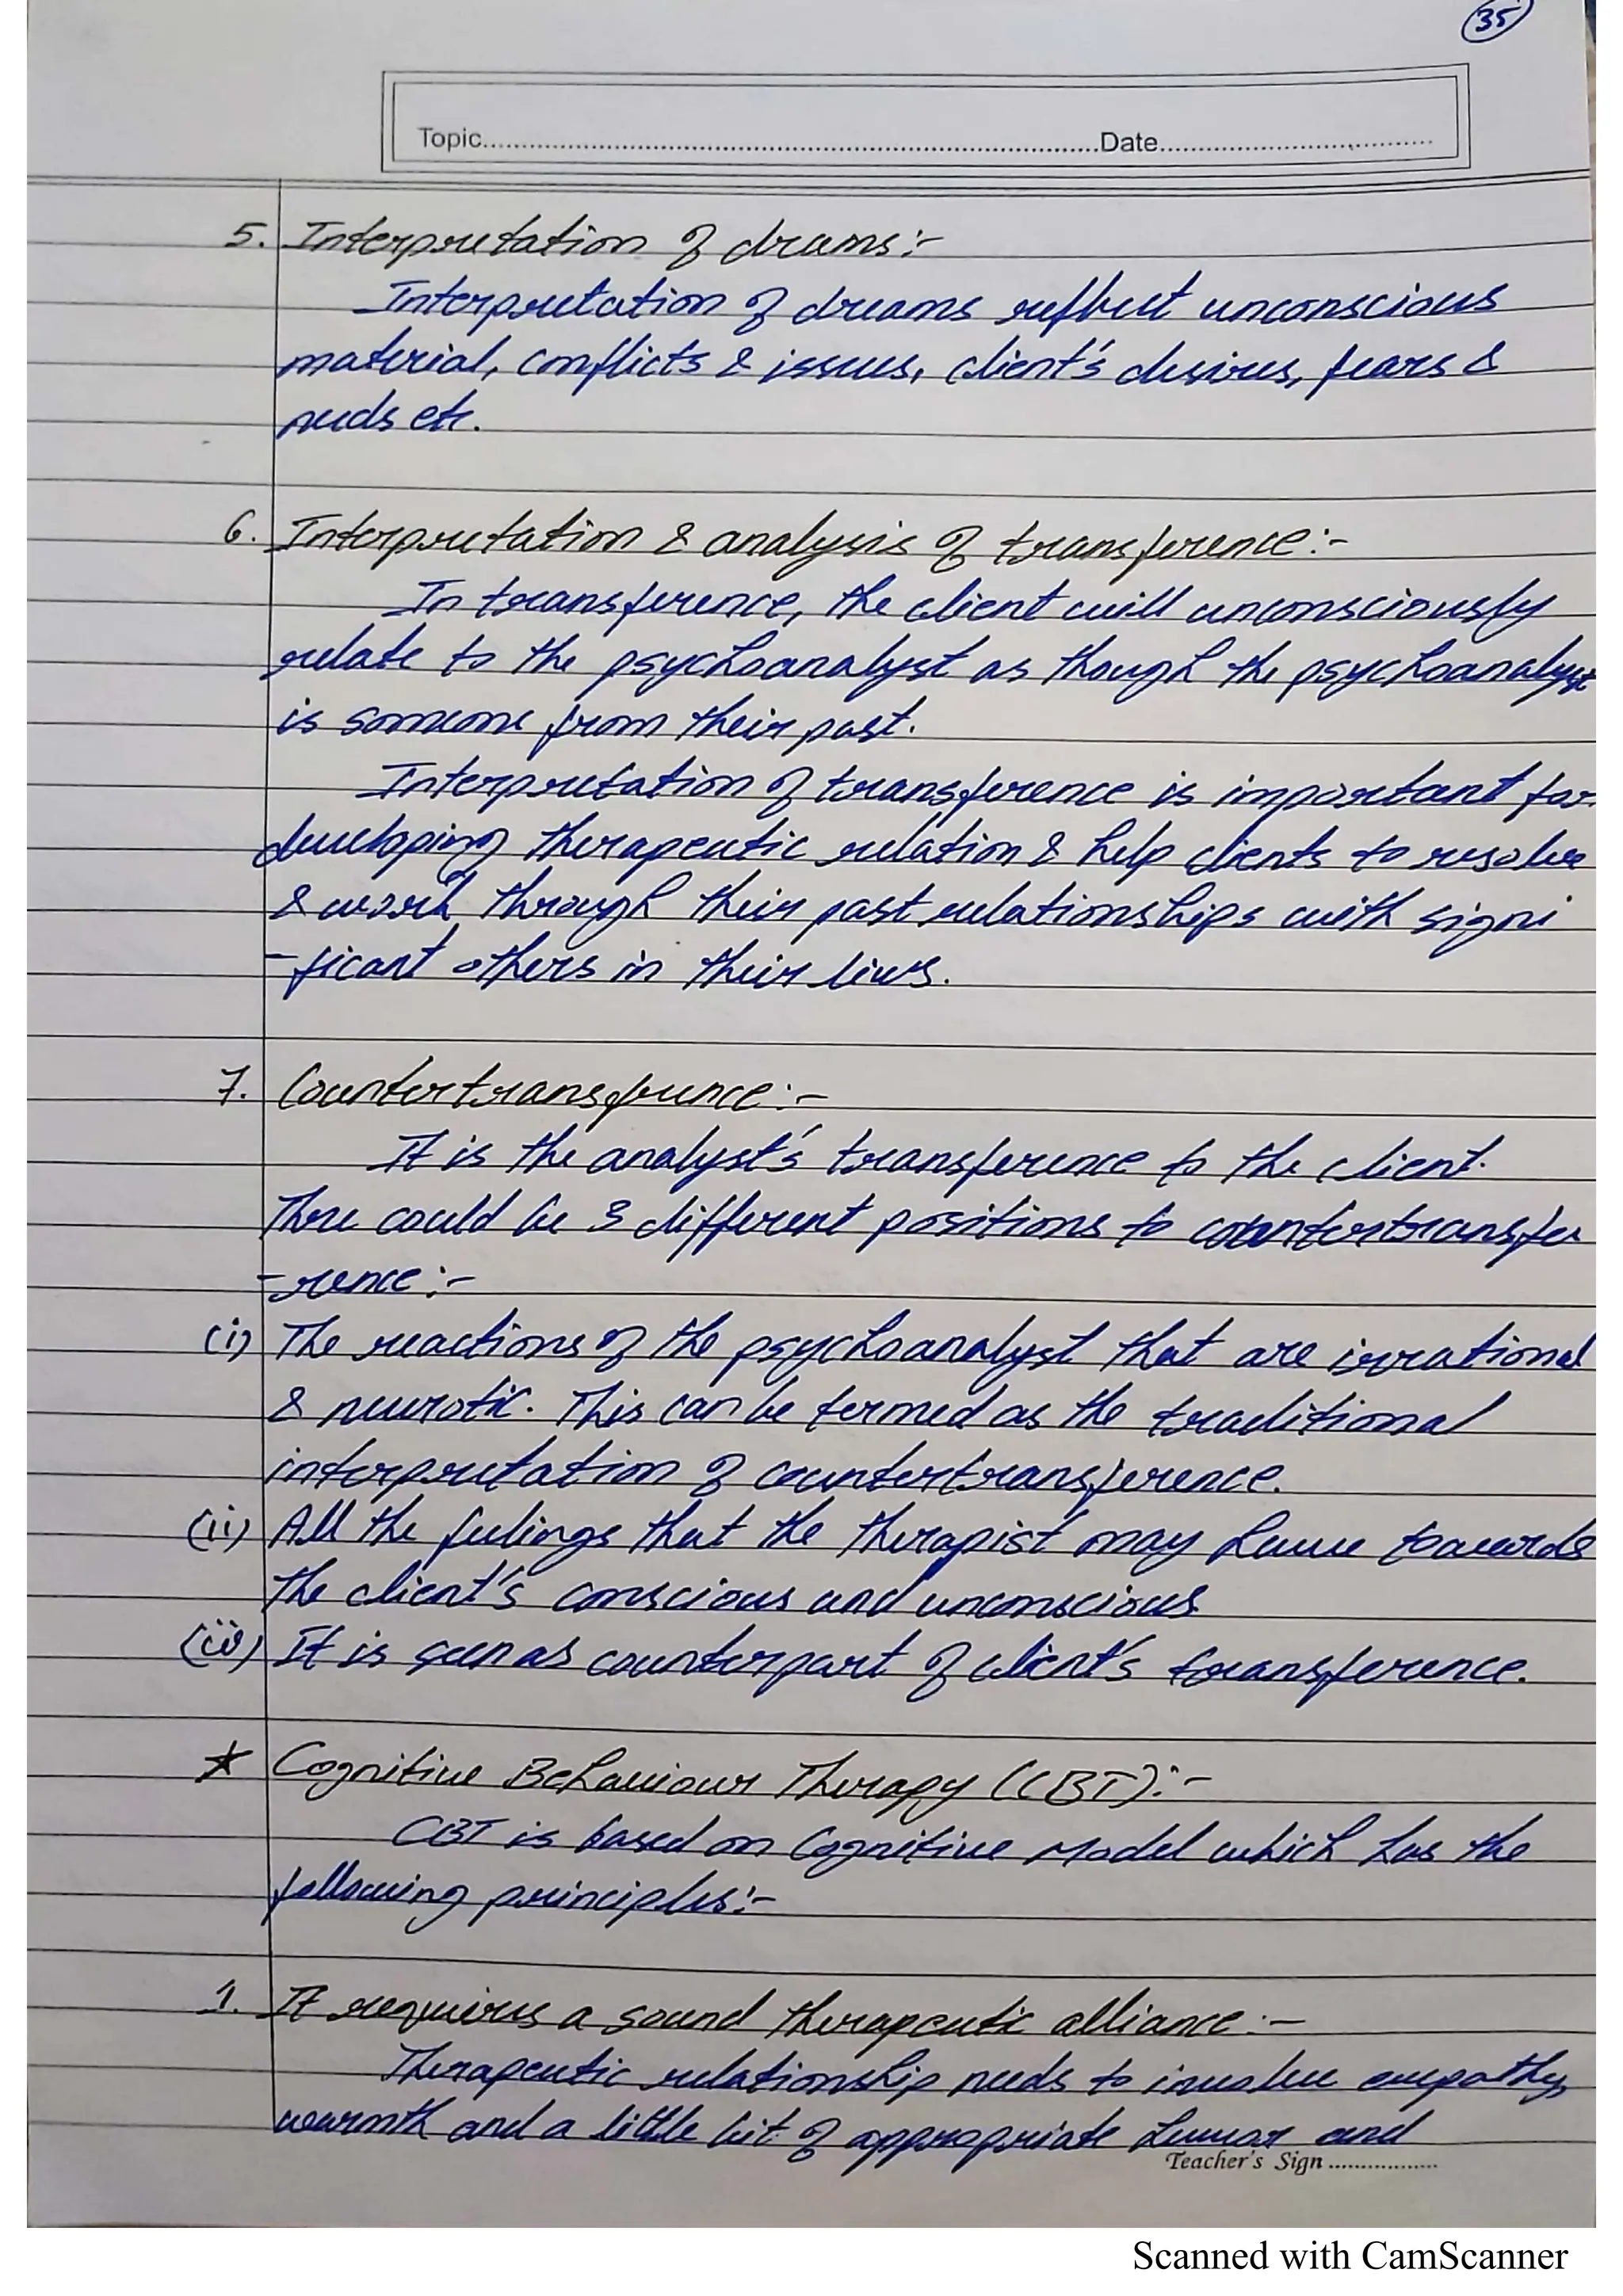 35
Topic..........Date..........
5. Interpretation of dreams:-
Interpretation of dreams reflect unconscious
material, conflicts & issues, client's desires, fears &
needs etc.
6. Interpretation & analysis of transference:-
In transference, the client will unconsciously
relate to the psychoanalyst as though the psychoanalyst
is someone from their past.
Interpretation of transference is important for
developing therapeutic relation & help clients to resolve
& work through their past relationships with signi
-ficant others in their lives.
7. Countertransference:-
It is the analyst's transference to the client.
There could be 3 different positions to countertransfer
-rence:-
(i) The reactions of the psychoanalyst that are irrational
& neurotic. This can be termed as the traditional
interpretation of countertransference.
(ii) All the feelings that the therapist may have towards
the client's conscious and unconscious
(iii) It is seen as counterpart of client's transference.
* Cognitive Behaviour Therapy (CBT):-
CBT is based on Cognitive Model which has the
following principles:-
1. It requires a sound therapeutic alliance:-
Therapeutic relationship needs to involve empathy,
warmth and a little bit of appropriate humor and
Teacher's Sign..........
Scanned with CamScanner